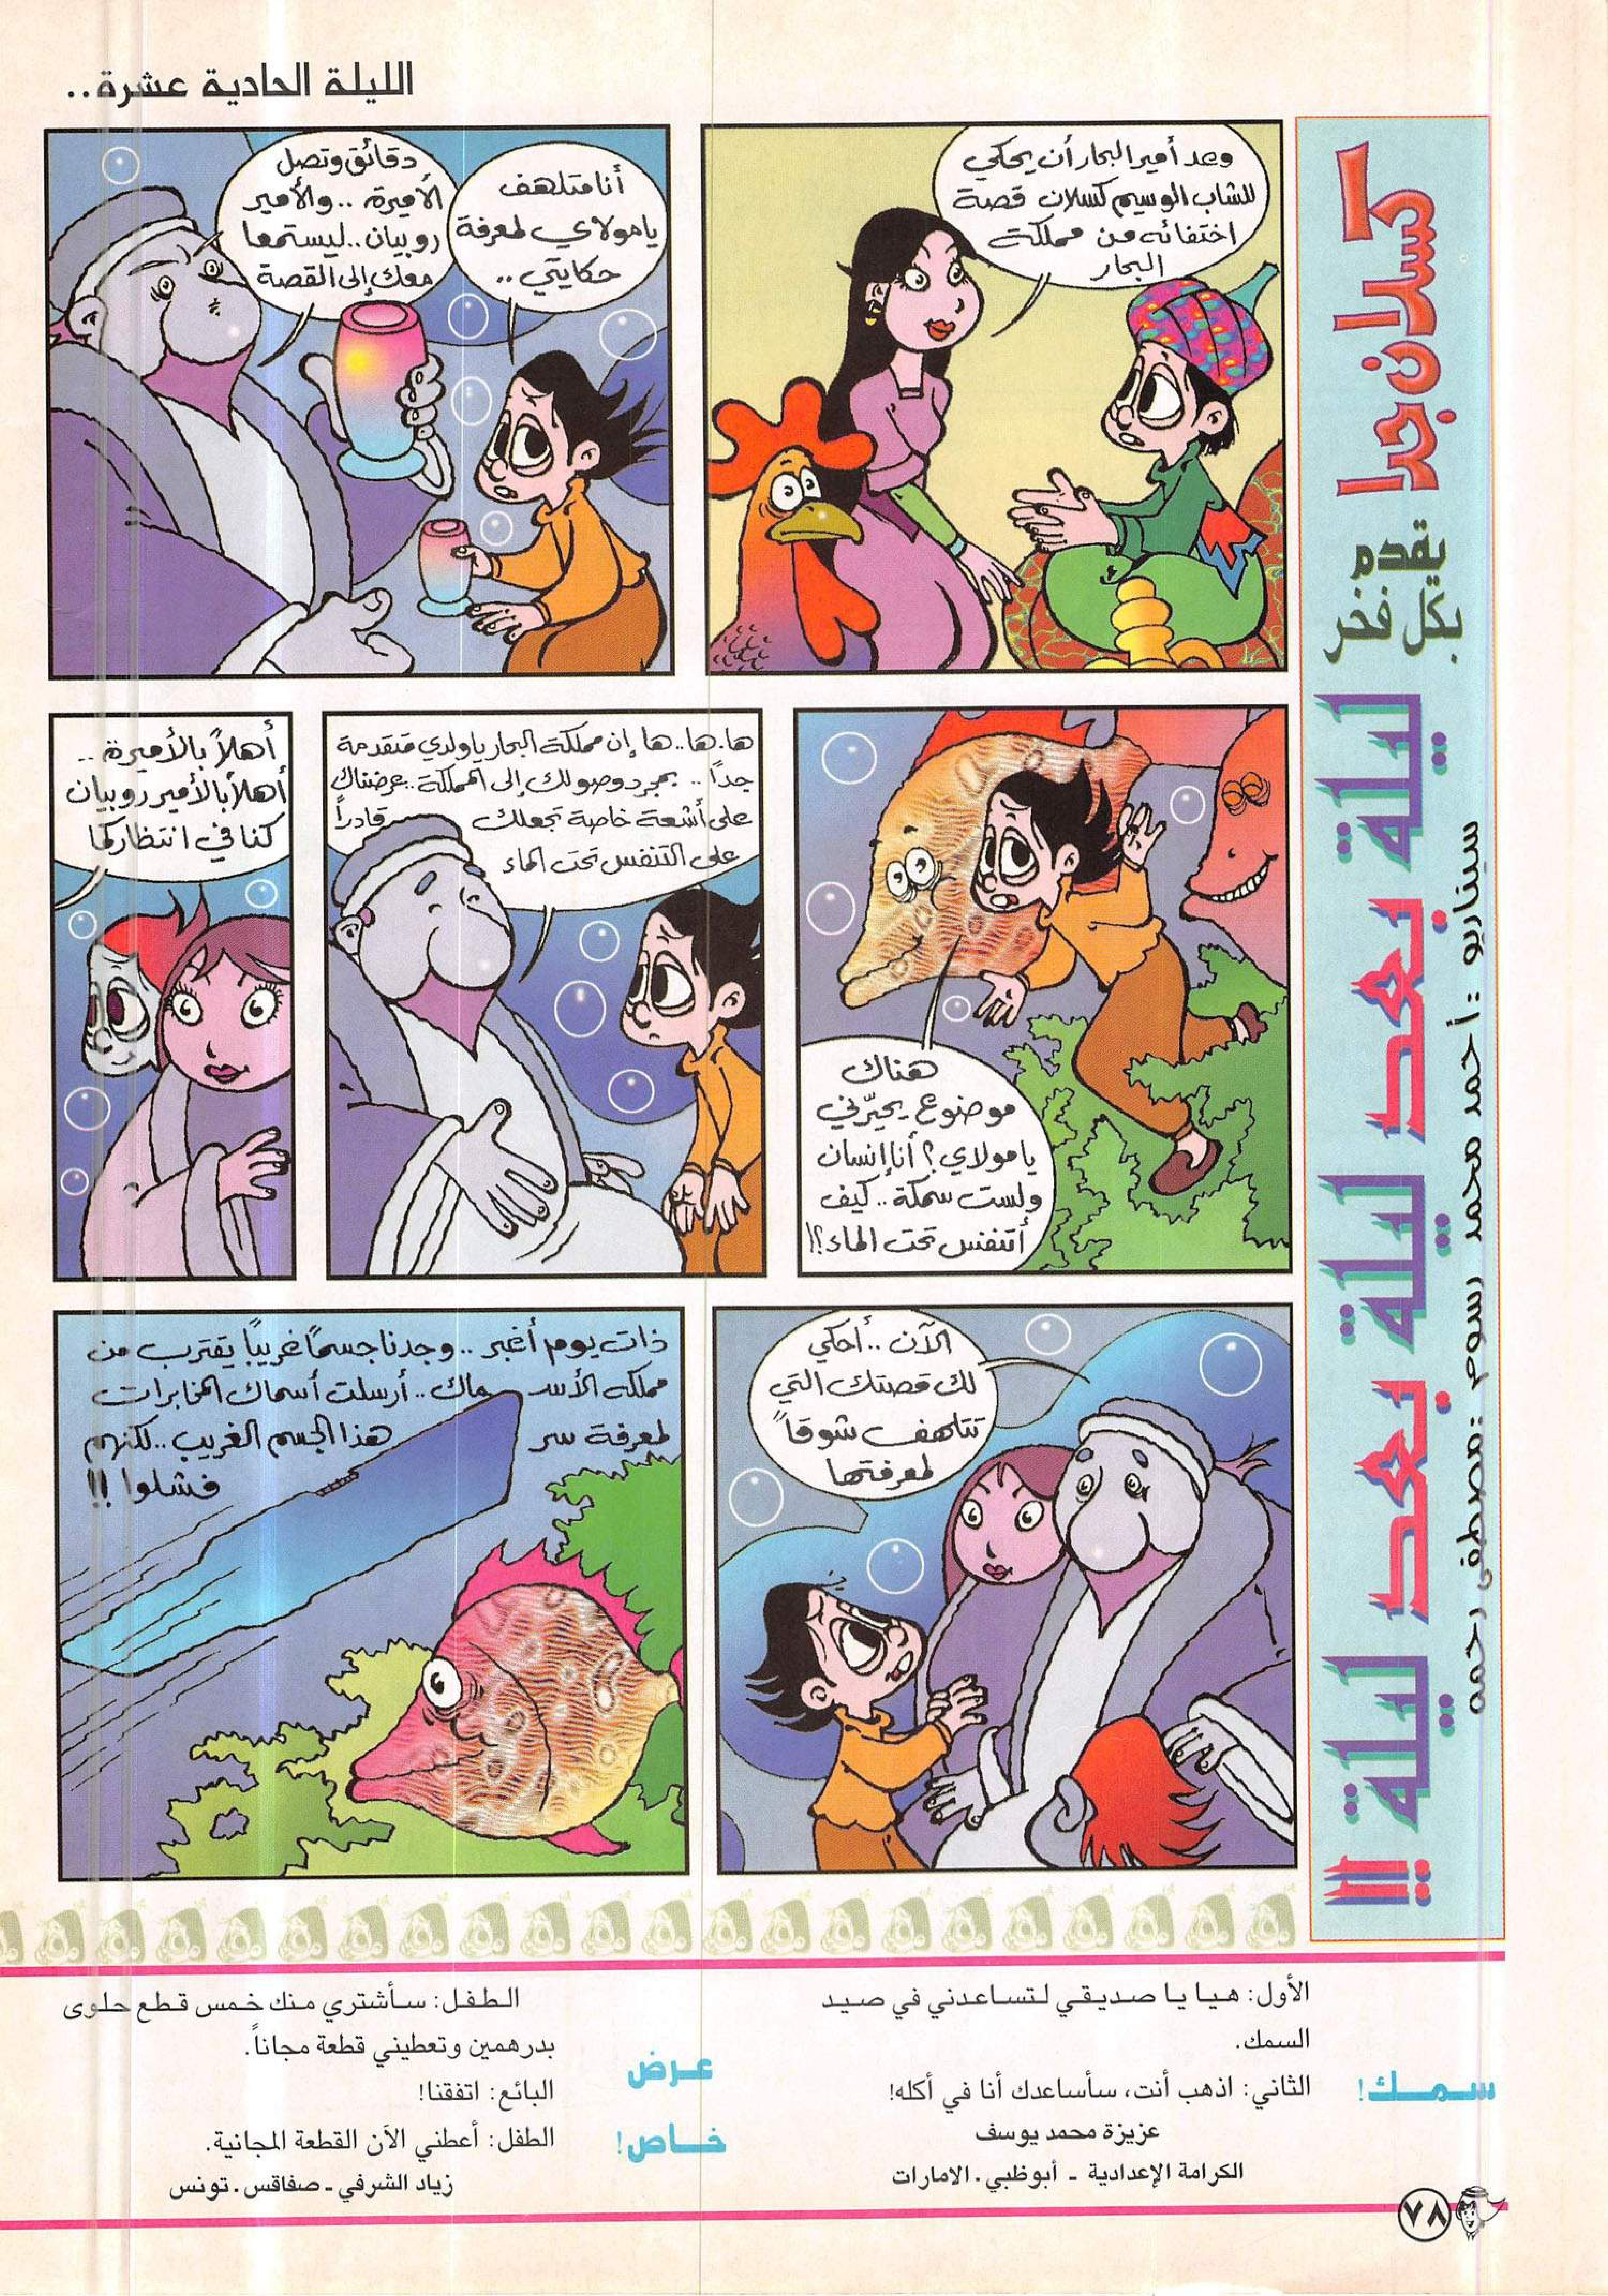 الليلة الحادية عشرة..
كسلان جدا
يقدم
بكل فخر
ليلة بعد ليلة بعد ليلة !!
سيناريو : أحمد محمد رسوم : مصطفى رحمه
وعد أمير البحار أن يحكي
للشاب الوسيم كسلان قصة
اختفائه من مملكة
البحار
أنا متلهف
يا مولاي لمعرفة
حكايتي ..
دقائق وتصل
الأميرة .. والأمير
روبيان .. ليستمعا
معك إلى القصة
هناك
موضوع يحيّرني
يا مولاي ؟ أنا إنسان
ولست سمكة .. كيف
أتنفس تحت الماء ؟!
ها.ها.. ها إن مملكة البحار يا ولدي متقدمة
جداً .. بمجرد وصولك إلى المملكة .. عرضناك
على أشعة خاصة تجعلك قادراً
على التنفس تحت الماء
أهلاً بالأميرة ..
أهلاً بالأمير روبيان
كنا في انتظاركما
الآن .. أحكي
لك قصتك التي
تتلهف شوقاً
لمعرفتها
ذات يوم أغبر .. وجدنا جسمًا غريبًا يقترب من
مملكة الأسماك .. أرسلت أسماك المخابرات
لمعرفة سر هذا الجسم الغريب .. لكنهم
فشلوا !!
سمك!
الأول: هيا يا صديقي لتساعدني في صيد
السمك.
الثاني: اذهب أنت، سأساعدك أنا في أكله!
عزيزة محمد يوسف
الكرامة الإعدادية - أبوظبي . الامارات
عرض
خاص!
الطفل: سأشتري منك خمس قطع حلوى
بدرهمين وتعطيني قطعة مجاناً.
البائع: اتفقنا!
الطفل: أعطني الآن القطعة المجانية.
زياد الشرفي - صفاقس . تونس
٧٨